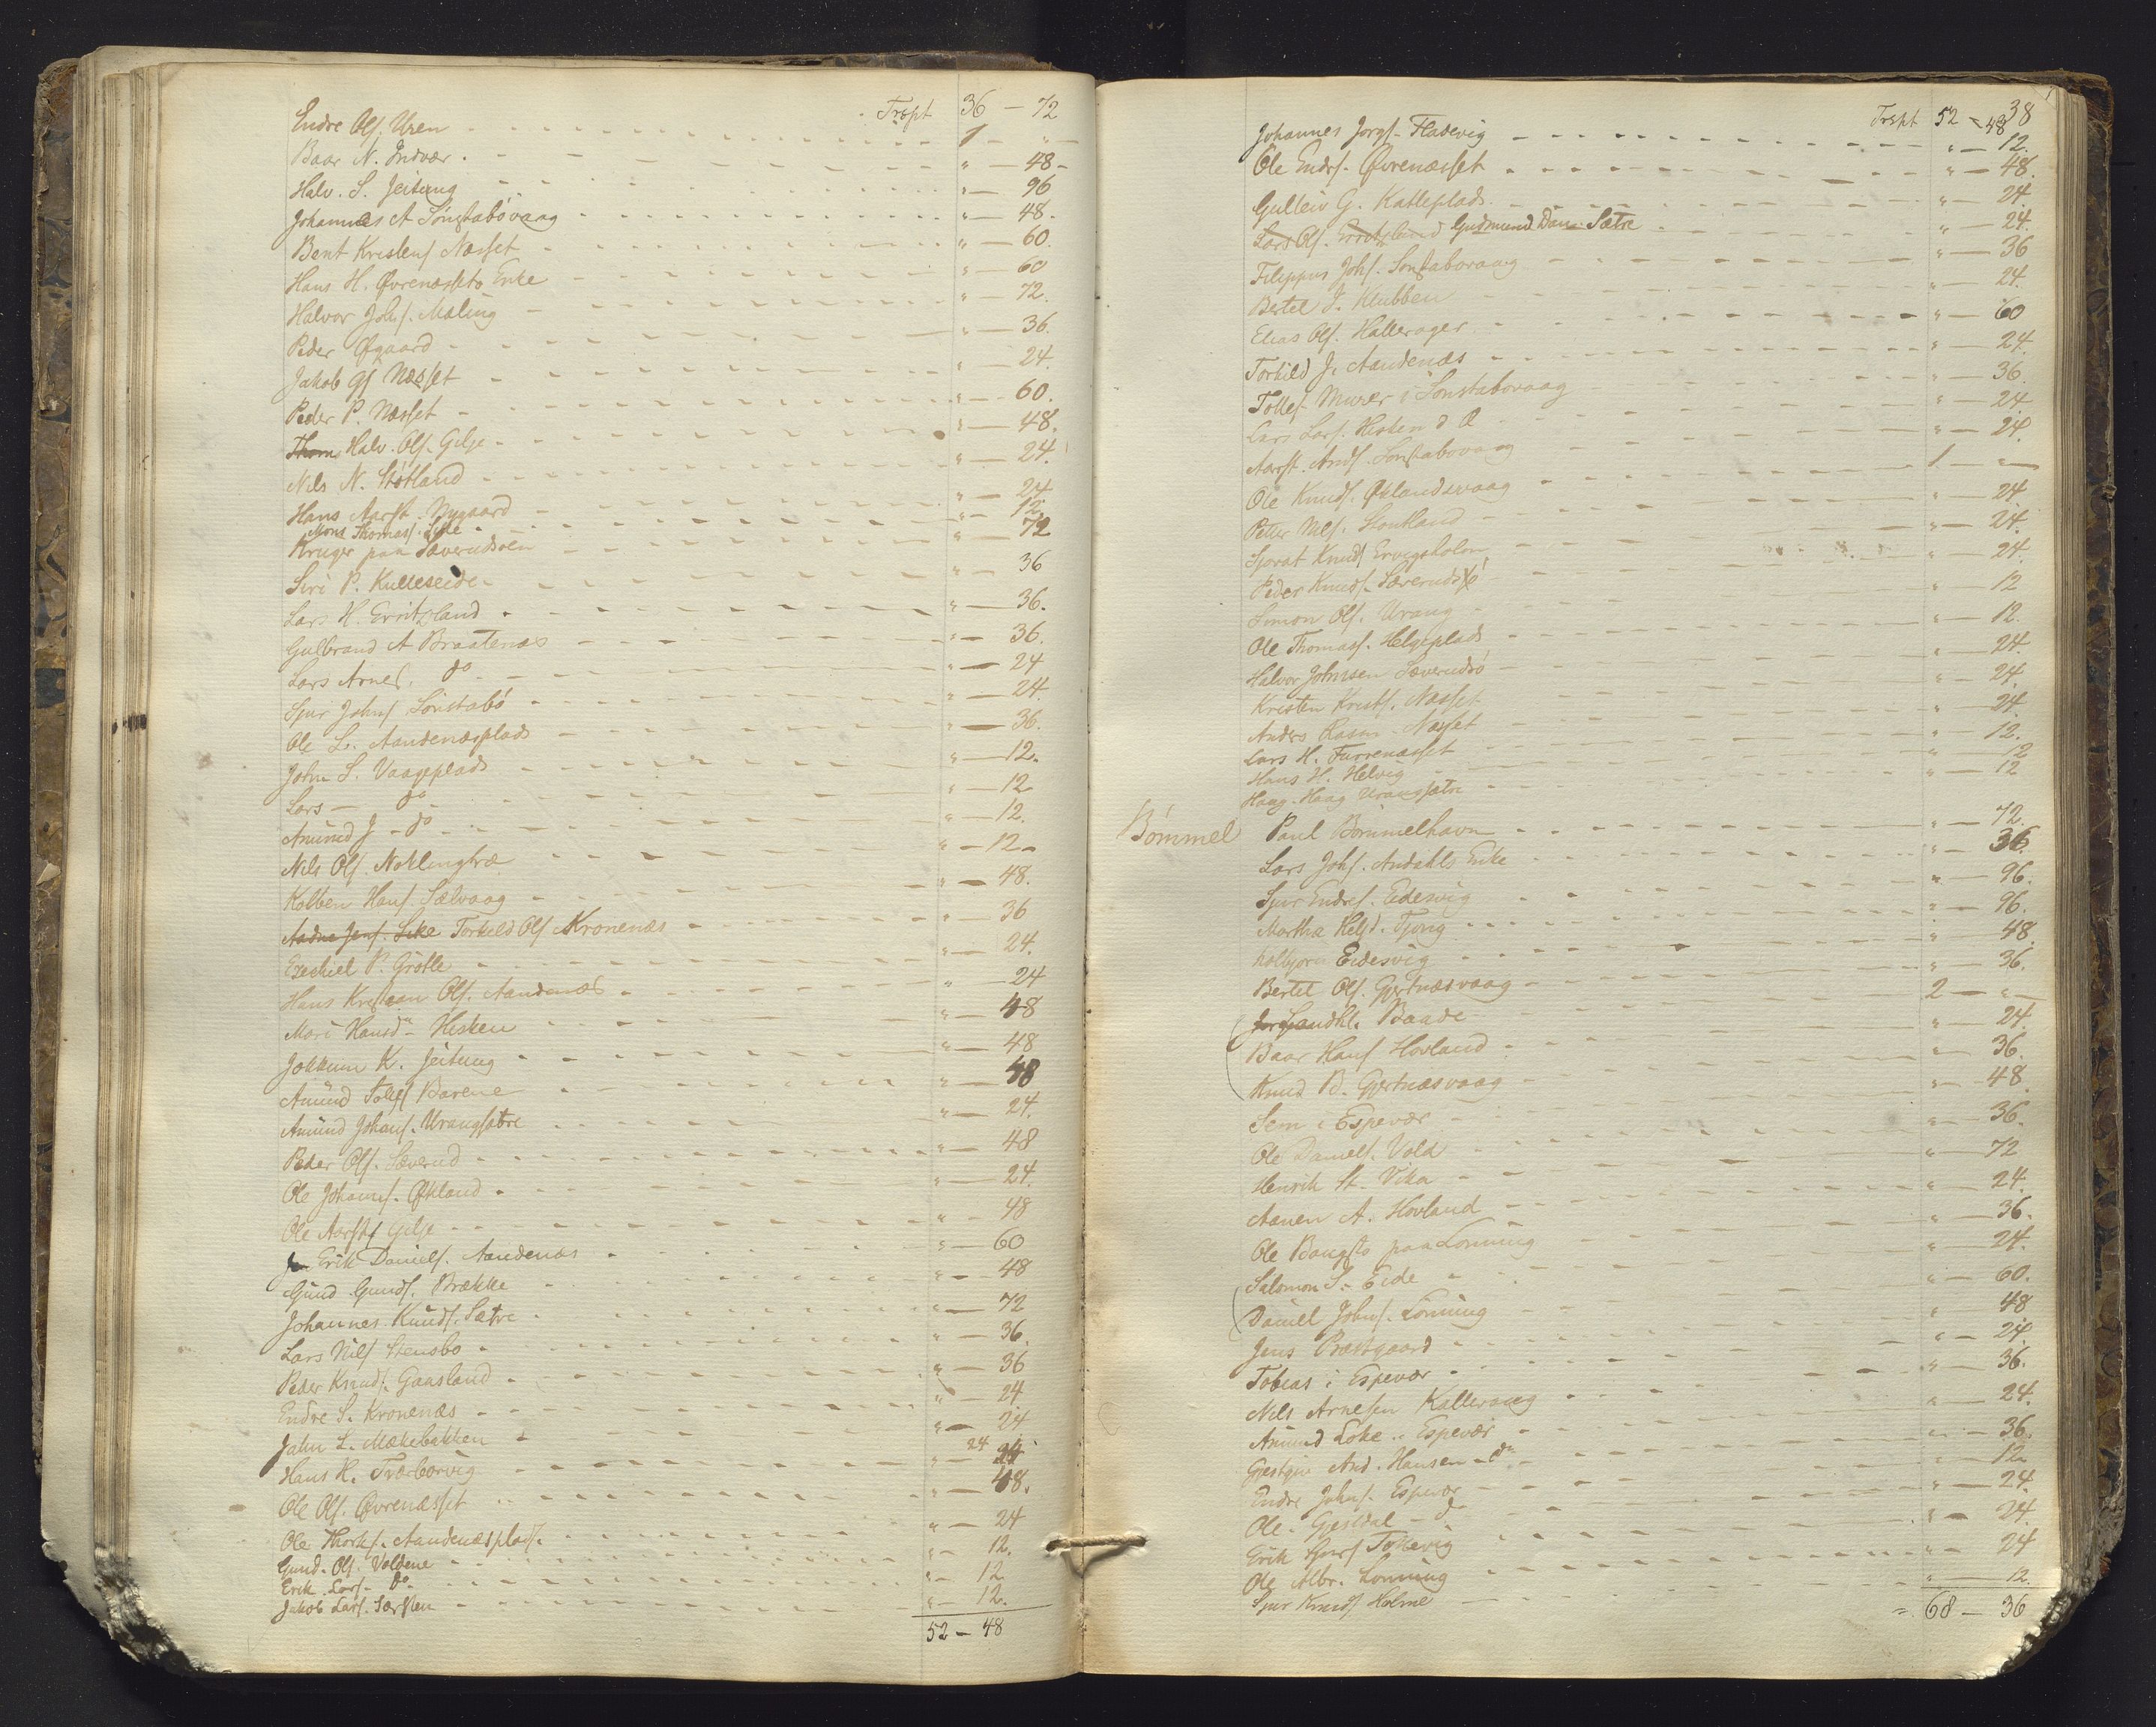 Trspt 36 — 72
Endre Ols. Uren 1 — " —
Baar N. Indvær. " — 48 -
Halv. S. Jeitung " — 96
Johannes A Sönstabövaag " — 48.
Bent Kristens Næsset " — 60.
Hans H. Øvrenæssets Enke " — 60
Halvor Johs. Mæling " — 72.
Peder Øgaard " — 36.
Jakob Gs Næsset " — 24.
Peder P. Næsset " — 60.
Thom Halv. Ols. Gilje " — 48.
Nils N. Stötland " — 24.
Hans Aarst. Nygaard " — 24
Mons Thomas. Like " — 12.
Kruger paa Sæverudsöen " — 72
Siri P. Kulleseide " — 36
Lars H. Erritzland " — 36.
Gulbrand A Braatenæs " — 36.
Lars Arnes. do " — 24
Sjur Johns Sönstabö " — 24.
Ole L. Aandenæsplads " — 36.
John S. Vaageplads " — 12.
Lars — do " — 12
Amund J - do " — 12.
Nils Ols. Noklingtræ " — 12 -
Kolben Hans. Sælvaag " — 48.
Aadne Jens. Like Torkild Ols Kronenæs " — 36
Ezechiel P. Grötle " — 24.
Hans Kristian Ols. Aandenæs " — 24
Mari Hansdr Hisken " — 48
Jokkum K. Jeitung " — 48
Amund Tolles Barene " — 48
Amund Johans. Urangsætre " — 24.
Peder Ols. Sæverud " — 48
Ole Johans. Økland " — 24.
Ole Aarsts Gilje " — 48
Erik Daniels. Aandenæs " — 60
Gund Gunds. Brække " — 48
Johannes Knuds. Sætre " — 72
Lars Nils Stensbo " — 36.
Peder Knuds. Gaasland " — 36
Endre S. Kronenæs " — 24
John L. Mækebakken " — 24
Hans K. Tværborvig " — 24 24
Ole Ols. Øvrenæsset " — 48.
Ole Thorks. Aandenæsplads. " — 24
Gund. Ols. Voldene " — 12.
Erik Lars. do " — 12
Jakob Lars. Særsten " — 12.
52 — 48
38
Trspt 52 — 48
Johannes Jorgs. Fladevig " — 12.
Ole Endrs. Øvrenæsset " — 48.
Gulleiv G. Katleplads " — 24.
Lars Ols. Erritzland Gudmund Dan Sætre " — 24.
Filippus Johs. Sonstabovaag " — 36
Bertel J. Klubben " — 24.
Elias Ols. Hallerager " — 60
Torkild J. Aandenæs " — 24.
Tolles Murer i Sonstabovaag " — 36.
Lars Lars. Hesten " — 24
Aarst. Ands. Sonstabovaag " — 24.
Ole Knuds. Øklandsvaag 1 — " —
Petter Nils. Stoutland " — 24
Sjovat Knuds " — 24.
Peder Knuds. Sæverudsö " — 24.
Simon Ols. Urang " — 12
Ole Thomas. Helgeplads " — 12.
Halvor Johnsen Sæverudsö " — 24.
Kristen Krists. Næsset " — 24.
Anders Rasm. Næsset " — 24.
Lars H. Furrenæsset " — 12.
Hans H. Helvig " — 12
Haag. Haag Urangsætre " — 12
Bömmel Paul Bömmelhavn " — 72.
Lars Johs. Andahls Enke " — 36.
Sjur Endres. Eidesvig " — 96.
Martha Helgd. Tjong " — 96.
Kolbjörn Eidesvig " — 48.
Bertel Ols. Gjertnæsvaag " — 36.
Baade 2 — " —
Baar Hans Hovland " — 24.
Knud B. Gjertnæsvaag " — 36.
Sem i Espevær " — 48.
Ole Daniels. Vold " — 36.
Henrik St. Vika " — 72
Aanen A. Hovland " — 24.
Ole Bangsts paa Lönning " — 36.
Salomon S. Eide " — 24.
Daniel Johns. Lönning " — 60.
Jens Præstgaard " — 48
Tobias i Espevær " — 24.
Nils Arnesen Kallevaag " — 36.
Amund Loke " Espevær " — 24.
Gjestgiv And. Hansen - do " — 36.
Endre Johns. Espevær " — 12.
Ole Gjesdal - do " — 24.
Erik Sjurs Tollevig " — 24.
Ole Albr. Lonning " — 24
Sjur Knuds Holme " — 12.
= 68 — 36